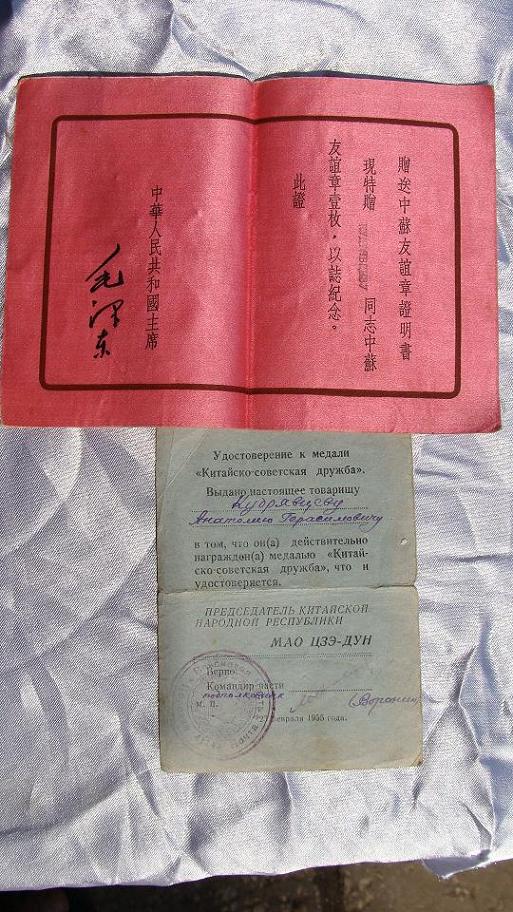 贈送中蘇友誼章證明書
現特贈 同志中蘇
友誼章壹枚，以誌紀念。
此證
中華人民共和國主席
毛澤東
Удостоверение к медали
«Китайско-советская дружба».
Выдано настоящее товарищу
Кудрявцеву
Анатолию Герасимовичу
в том, что он(а) действительно
награжден(а) медалью «Китай-
ско-советская дружба», что и
удостоверяется.
ПРЕДСЕДАТЕЛЬ КИТАЙСКОЙ
НАРОДНОЙ РЕСПУБЛИКИ
МАО ЦЗЭ-ДУН
Верно:
Командир части
подполковник
(Воронин)
м. п.
27 февраля 1955 года.